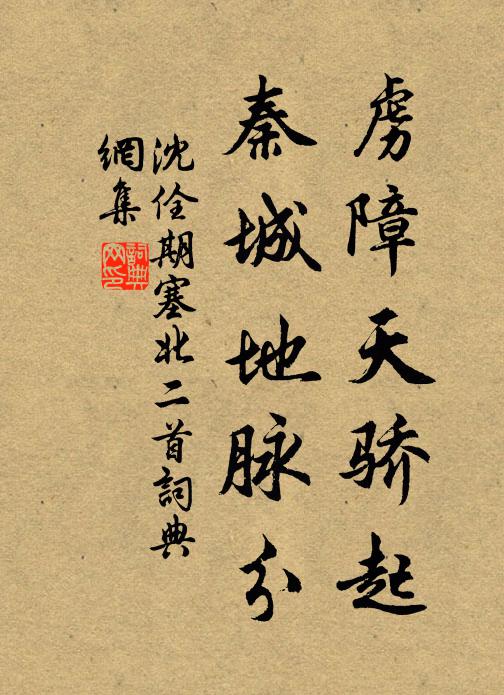 虏障天骄起
秦城地脉分
沈佺期塞北二首詞典
網集
詞典
网印